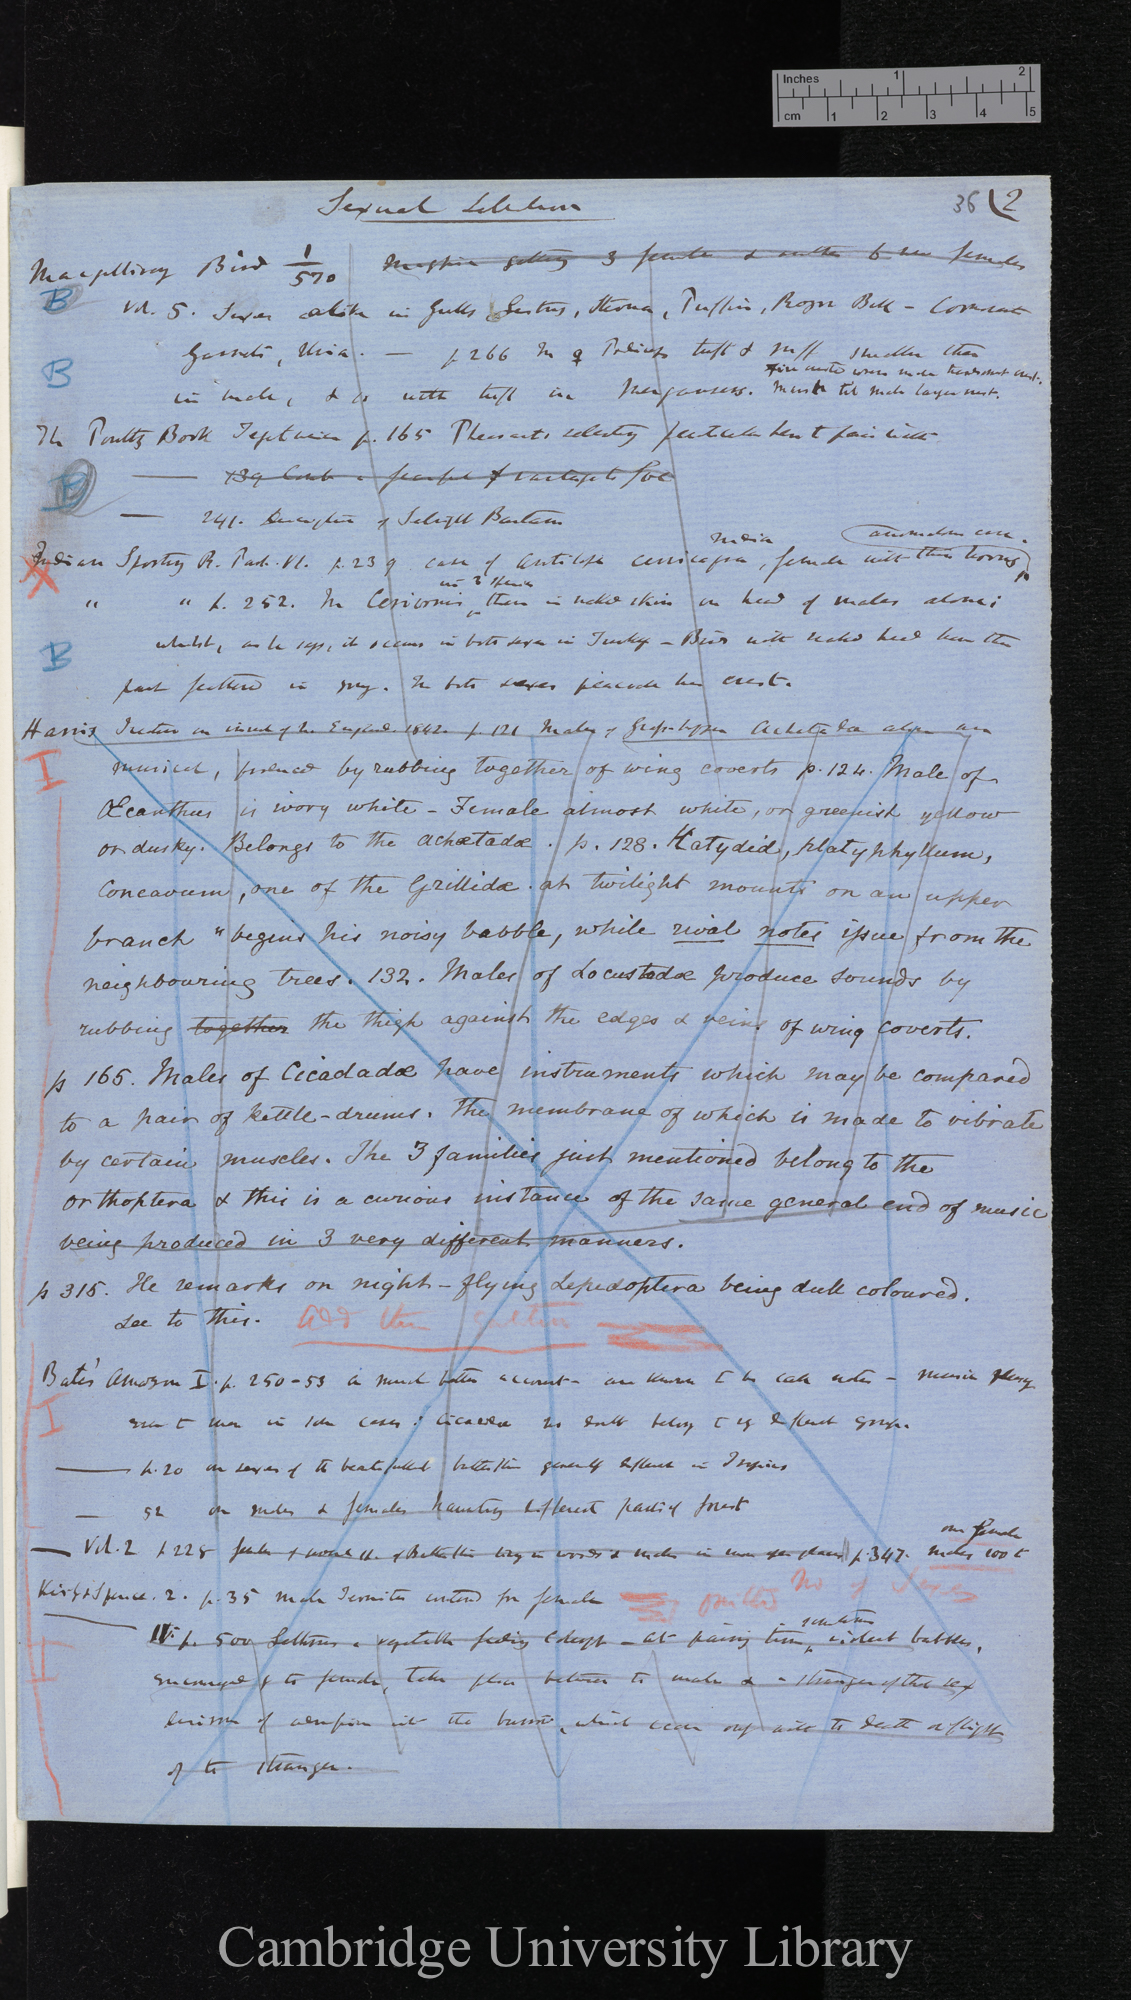 Inches 1 2
cm 1 2 3 4 5
Sexual Selection
36 (2
Macgillivray Bird 1/570 Magpie getting 3 females & another 6 new females
B
Vol. 5. Sexes alike in Gulls, Sterna, Puffin, Razor Bill – Cormorant
Gannets, Uria. — p 266 In ♀ Podiceps tuft & ruff smaller than
B
in male, & so with tuft in Mergansers.
The Poultry Book Tegetmeier p. 165 Pheasants selecting particular hen to pair with
B
241. Description of Sebright Bantam
Indian Sporting R. p. 239 case of Antilope cervicapra, India female with horns
X
" " p. 252. In Ceriornis, there is naked skin on head of males alone;
whilst, as he says, it occurs in both sexes in Turkey – Birds with naked head have the
B
part feathered in young. In both sexes peacock has crest.
Harris Treatise on insects of New England 1842 p. 121 Males of Grasshopper Achetadæ alone are
I
musical, produced by rubbing together of wing coverts p. 124. Male of
Œcanthus is ivory white – Female almost white, or greenish yellow
or dusky. Belongs to the achætadæ. p. 128. Katydid, platyphyllum,
Concavum, one of the Grillidæ. at twilight mounts on an upper
branch "begins his noisy babble, while rival notes issue from the
neighbouring trees. 132. Males of Locustadæ produce sounds by
rubbing together the thigh against the edges & veins of wing coverts.
p 165. Males of Cicadadæ have instruments which may be compared
to a pair of kettle-drums. The membrane of which is made to vibrate
by certain muscles. The 3 families just mentioned belong to the
orthoptera & this is a curious instance of the same general end of music
being produced in 3 very different manners.
p 315. He remarks on night-flying Lepidoptera being dull coloured.
See to this.
Bates' Amazon I. p. 250-53 a much better account
I
p. 20 on sexes of the beautifullest butterflies generally different in Tropics
52 on males & females haunting different parts of forest
Vol. 2 p 228 p. 347. males 100 to one female
No of Sexes
Kirby & Spence. 2. p. 35 male Termites outnumber female
IV. p. 500 Lethrus a vegetable feeding Coleopt – at pairing time, sometimes violent battles,
I
encouraged by the female, take place between the male & a stranger of that sex
desirous of admission into the burrow, which cease only with the death or flight
of the stranger.
Cambridge University Library